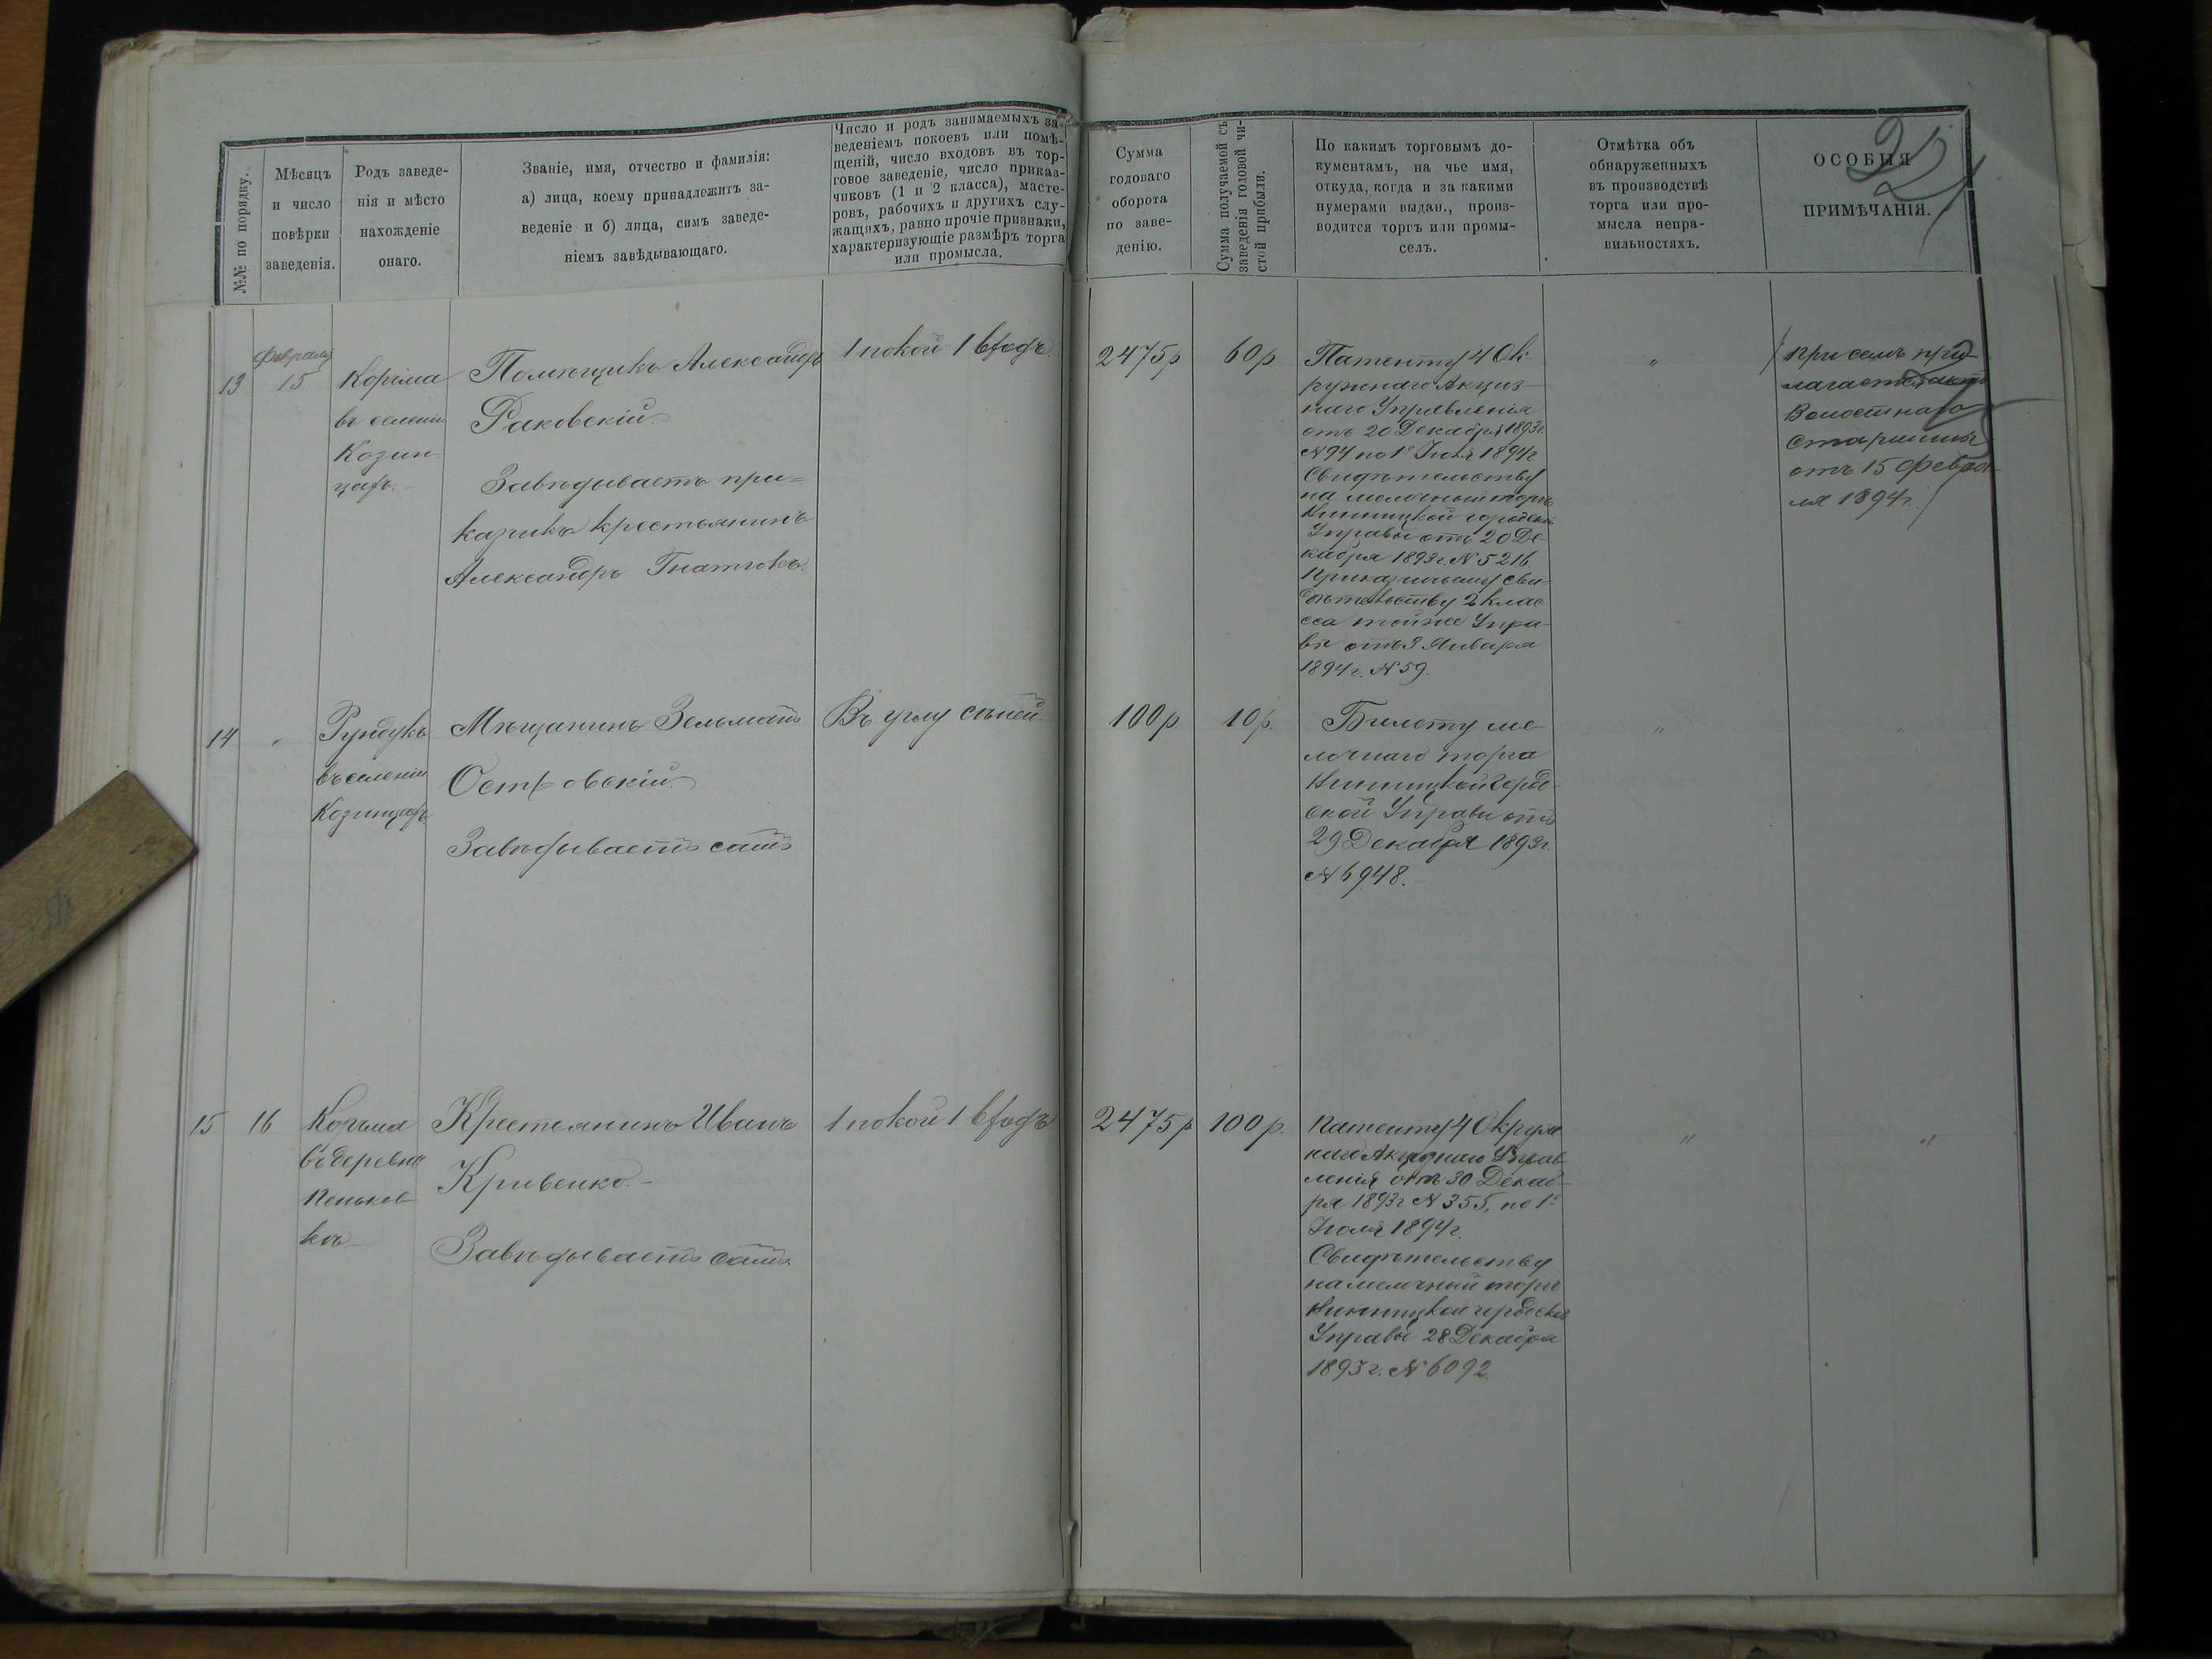 №№ по порядку.
Мѣсяцъ
и число
повѣрки
заведенія.
Родъ заведе-
нія и мѣсто
нахожденіе
онаго.
Званіе, имя, отчество и фамилія:
а) лица, коему принадлежитъ за-
веденіе и б) лица, симъ заведе-
ніемъ завѣдывающаго.
Число и родъ занимаемыхъ за-
веденіемъ покоевъ или помѣ-
щеній, число входовъ въ тор-
говое заведеніе, число приказ-
чиковъ (1 и 2 класса), масте-
ровъ, рабочихъ и другихъ слу-
жащихъ, равно прочіе признаки,
характеризующіе размѣръ торга
или промысла.
Сумма
годоваго
оборота
по заве-
денію.
Сумма получаемой съ
заведенія годовой чи-
стой прибыли.
По какимъ торговымъ до-
кументамъ, на чье имя,
откуда, когда и за какими
нумерами выдан., произ-
водится торгъ или промы-
селъ.
Отмѣтка объ
обнаруженныхъ
въ производствѣ
торга или про-
мысла непра-
вильностяхъ.
ОСОБЫЯ
ПРИМѢЧАНІЯ.
13
Февраля
15
Корчма
въ селеніи
Козин-
цахъ.
Помѣщикъ Александръ
Раковскій.
Завѣдываетъ при-
кащикъ крестьянинъ
Александръ Гнатюкъ.
1 покой 1 входъ
2475 р
60 р
Патенту 4 Ок
ружнаго Акциз-
наго Управленія
отъ 20 Декабря 1893 г.
№ 94 по 1е Іюля 1894 г.
Свидѣтельству
на мелочный торгъ
Винницкой городской
Управы отъ 20 Де-
кабря 1893 г. № 5216.
Приказчичьему сви-
дѣтельству 2 клас-
са той же Упра-
вы отъ 3 Января
1894 г. № 59.
"
При семъ при-
лагается актъ
Волостнаго
Старшины
отъ 15 Февра-
ля 1894 г.
14
"
Рундукъ
въ селеніи
Козинцахъ.
Мѣщанинъ Зельманъ
Островскій.
Завѣдываетъ самъ
Въ углу сѣней.
100 р.
10 р.
Билету ме-
лочнаго торга
Винницкой Город-
ской Управы отъ
29 Декабря 1893 г.
№ 6948.
"
"
15
16
Корчма
въ деревнѣ
Пеньков-
кѣ
Крестьянинъ Иванъ
Кривенко.
Завѣдываетъ самъ.
1 покой 1 входъ
2475 р
100 р.
Патенту 4 Окруж
наго Акцизнаго Управ-
ленія отъ 30 Декаб-
ря 1893 г. № 355, по 1е
Іюля 1894 г.
Свидѣтельству
на мелочный торгъ
Винницкой городской
Управы 28 Декабря
1893 г. № 6092.
"
"